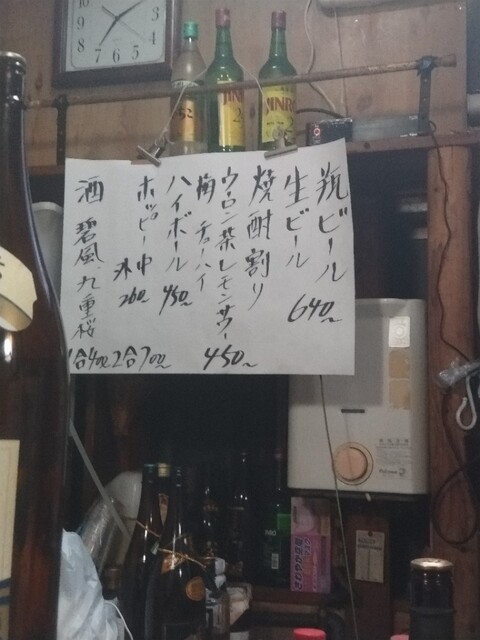 瓶ビール
生ビール
640~
焼酎割り
ウーロン茶レモンサワー
梅 チューハイ
450~
ハイボール
450~
ホッピー中
外
260~
酒 碧風.九重桜
1合400 2合700~
JINRO
JINRO